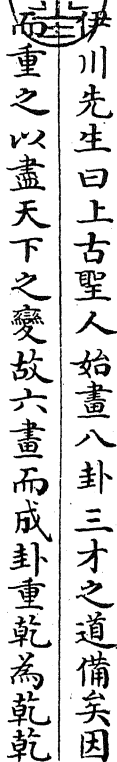 伊川先生曰上古聖人始畫八卦三才之道備矣因
而重之以盡天下之變故六畫而成卦重乾為乾乾